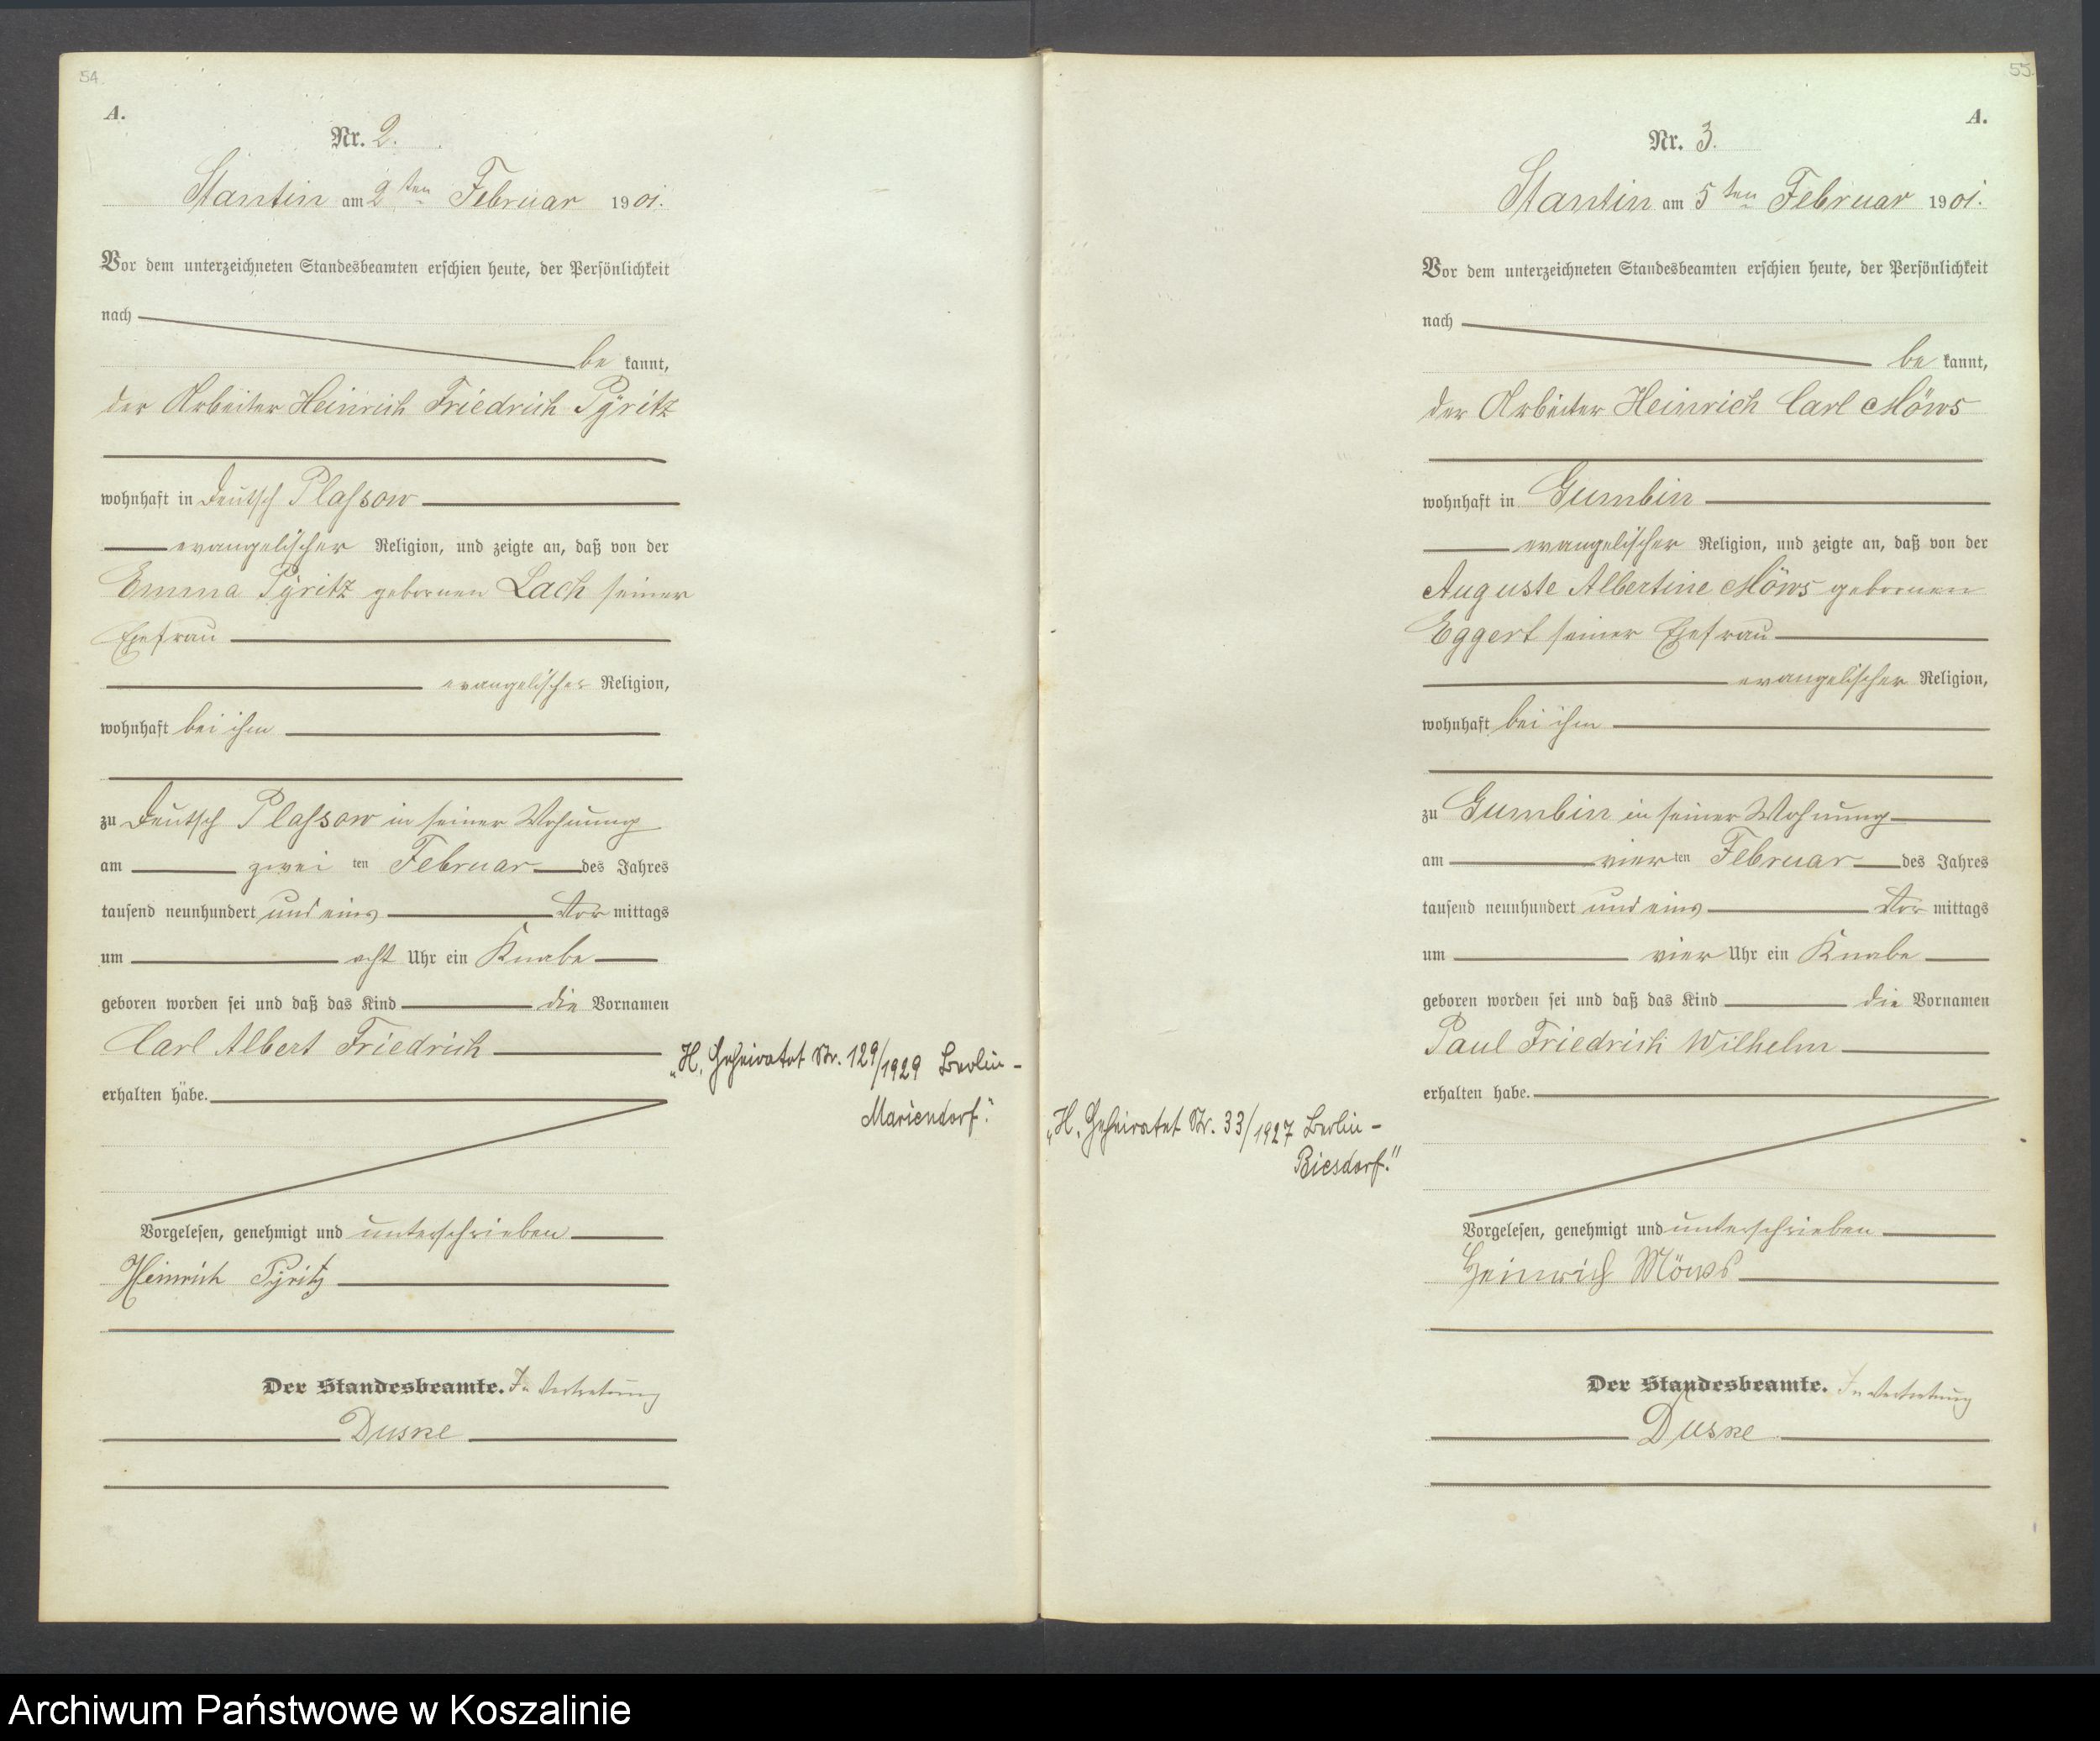 54.
A.
Nr. 2.
Stantin am 2ten Februar 1901.
Vor dem unterzeichneten Standesbeamten erschien heute, der Persönlichkeit
nach
be kannt,
der Arbeiter Heinrich Friedrich Pyritz
wohnhaft in Deutsch Plassow
evangelischer Religion, und zeigte an, daß von der
Emma Pyritz gebornen Lach seiner
Ehefrau
evangelischer Religion,
wohnhaft bei ihm
zu Deutsch Plassow in seiner Wohnung
am zwei ten Februar des Jahres
tausend neunhundert und eins Vor mittags
um acht Uhr ein Knabe
geboren worden sei und daß das Kind die Vornamen
Carl Albert Friedrich
erhalten habe.
„H. Geheiratet Nr. 129/1929 Berlin-
Mariendorf."
Vorgelesen, genehmigt und unterschrieben
Heinrich Pyritz
Der Standesbeamte. In Vertretung
Duske
55.
A.
Nr. 3.
Stantin am 5ten Februar 1901.
Vor dem unterzeichneten Standesbeamten erschien heute, der Persönlichkeit
nach
be kannt,
der Arbeiter Heinrich Carl Möws
wohnhaft in Gumbin
evangelischer Religion, und zeigte an, daß von der
Auguste Albertine Möws gebornen
Eggert seiner Ehefrau
evangelischer Religion,
wohnhaft bei ihm
zu Gumbin in seiner Wohnung
am vier ten Februar des Jahres
tausend neunhundert und eins Vor mittags
um vier Uhr ein Knabe
geboren worden sei und daß das Kind die Vornamen
Paul Friedrich Wilhelm
erhalten habe.
„H. Geheiratet Nr. 33/1927 Berlin-
Biesdorf."
Vorgelesen, genehmigt und unterschrieben
Heinrich Möws
Der Standesbeamte. In Vertretung
Duske
Archiwum Państwowe w Koszalinie